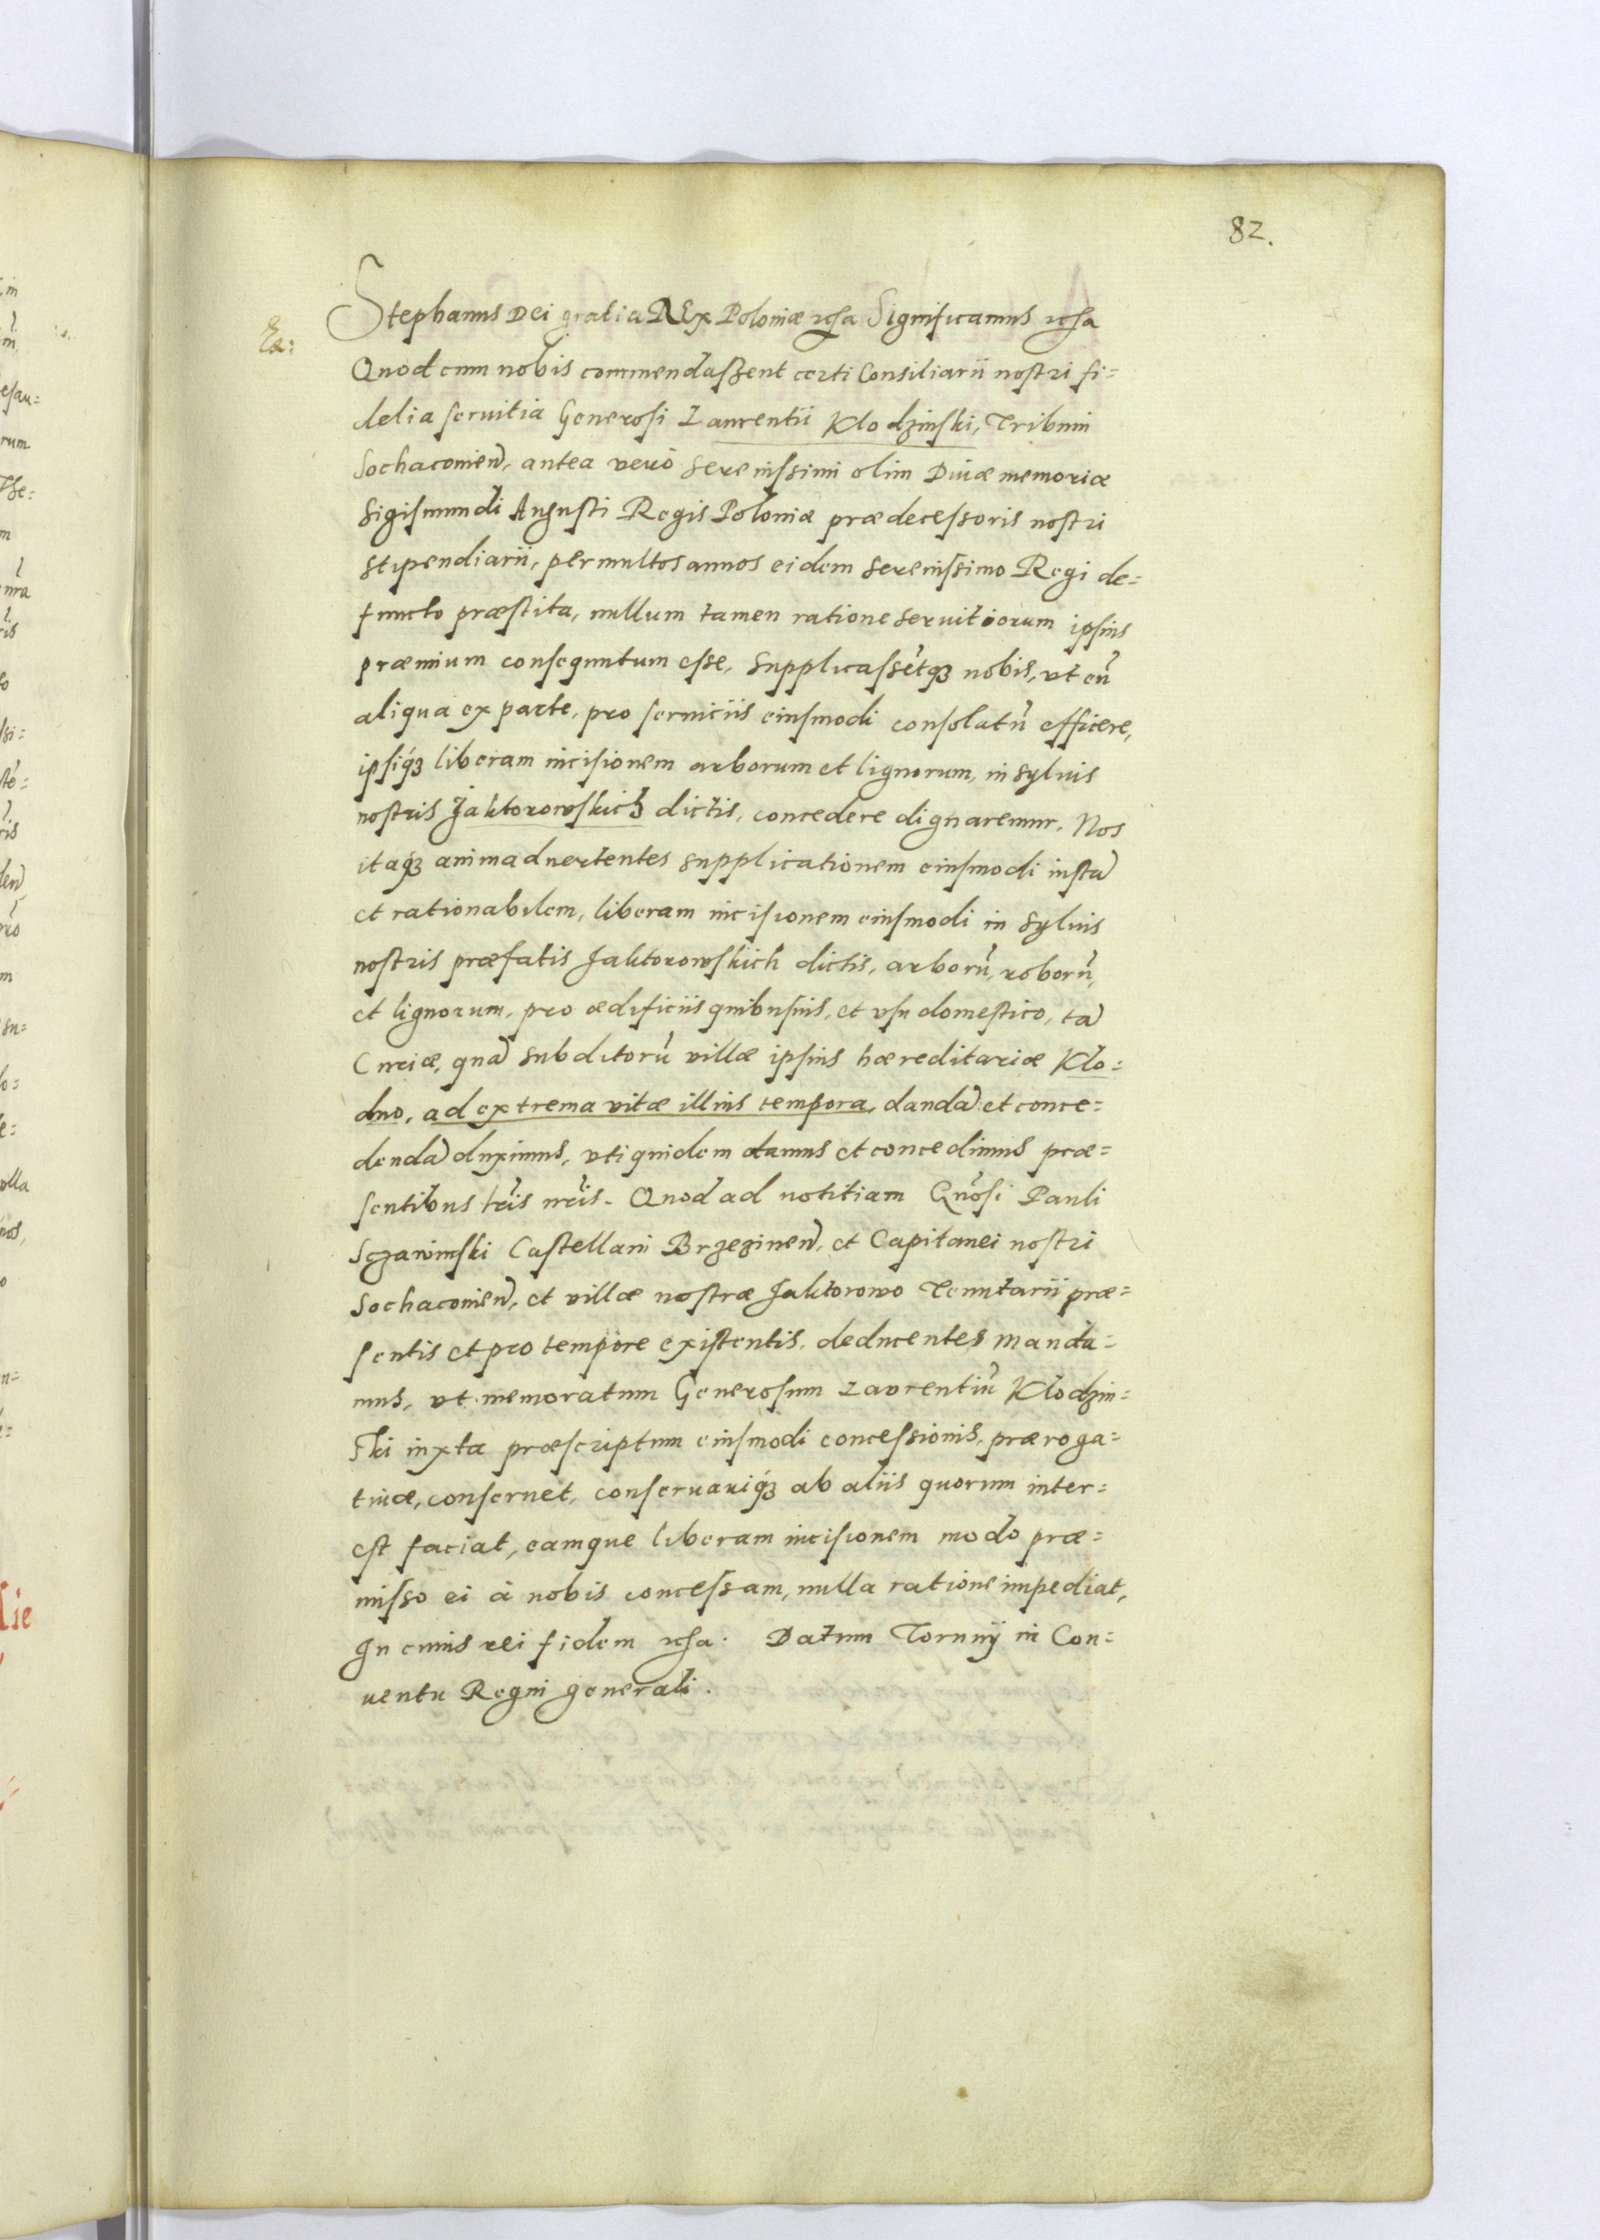 82.
Stephanus Dei gratia REx Poloniæ etc͠a Significamus etc͠a
Quod cum nobis commendaszent certi Consiliarii nostri fi=
delia seruitia Generosi Laurentii Klodzinski, Tribuni
Sochaconien̄, antea verò serenissimi olim Diuæ memoriæ
Sigismundi Augusti Regis Poloniæ prædecessoris nostri
stipendiarii, per multos annos eidem serenissimo Regi de=
functo præstita, nullum tamen ratione seruitiorum ipsius
præmium consequutum esse, supplicassētq3 nobis, vt eū
aliqua ex parte, pro seruiciis eiusmodi consolatū efficere,
ipsiq́3 liberam incisionem arborum et lignorum, in syluis
nostris Jaktorowskich dictis, concedere dignaremur. Nos
itaq́3 animaduertentes supplicationem eiusmodi iustā
et rationabilem, liberam incisionem eiusmodi in syluis
nostris præfatis Jaktorowskich dictis, arborū, roborū,
et lignorum, pro ædificiis quibusuis, et vsu domestico, tā
Curiæ, quā subditorū villæ ipsius hæreditariæ Klo=
dno, ad extrema vitæ illius tempora, dandā et conce=
dendā duximus, vti quidem damus et concedimus præ=
sentibus lr̄is nr̄is. Quod ad notitiam Gn̄osi Pauli
Sczawinski Castellani Brzezinen̄, et Capitanei nostri
Sochaconien̄, et villæ nostræ Jaktorowo Tenutarii præ=
sentis et pro tempore existentis, deducentes manda=
mus, vt memoratum Generosum Laurentiū Klodzin=
ski iuxta præscriptum eiusmodi concessionis, præroga=
tiuæ, conseruet, conseruariq́3 ab aliis quorum inter=
est faciat, eamque liberam incisionem modo præ=
misso ei à nobis concessam, nulla ratione impediat,
In cuius rei fidem etc͠a. Datum Torunij in Con=
uentu Regni generali.